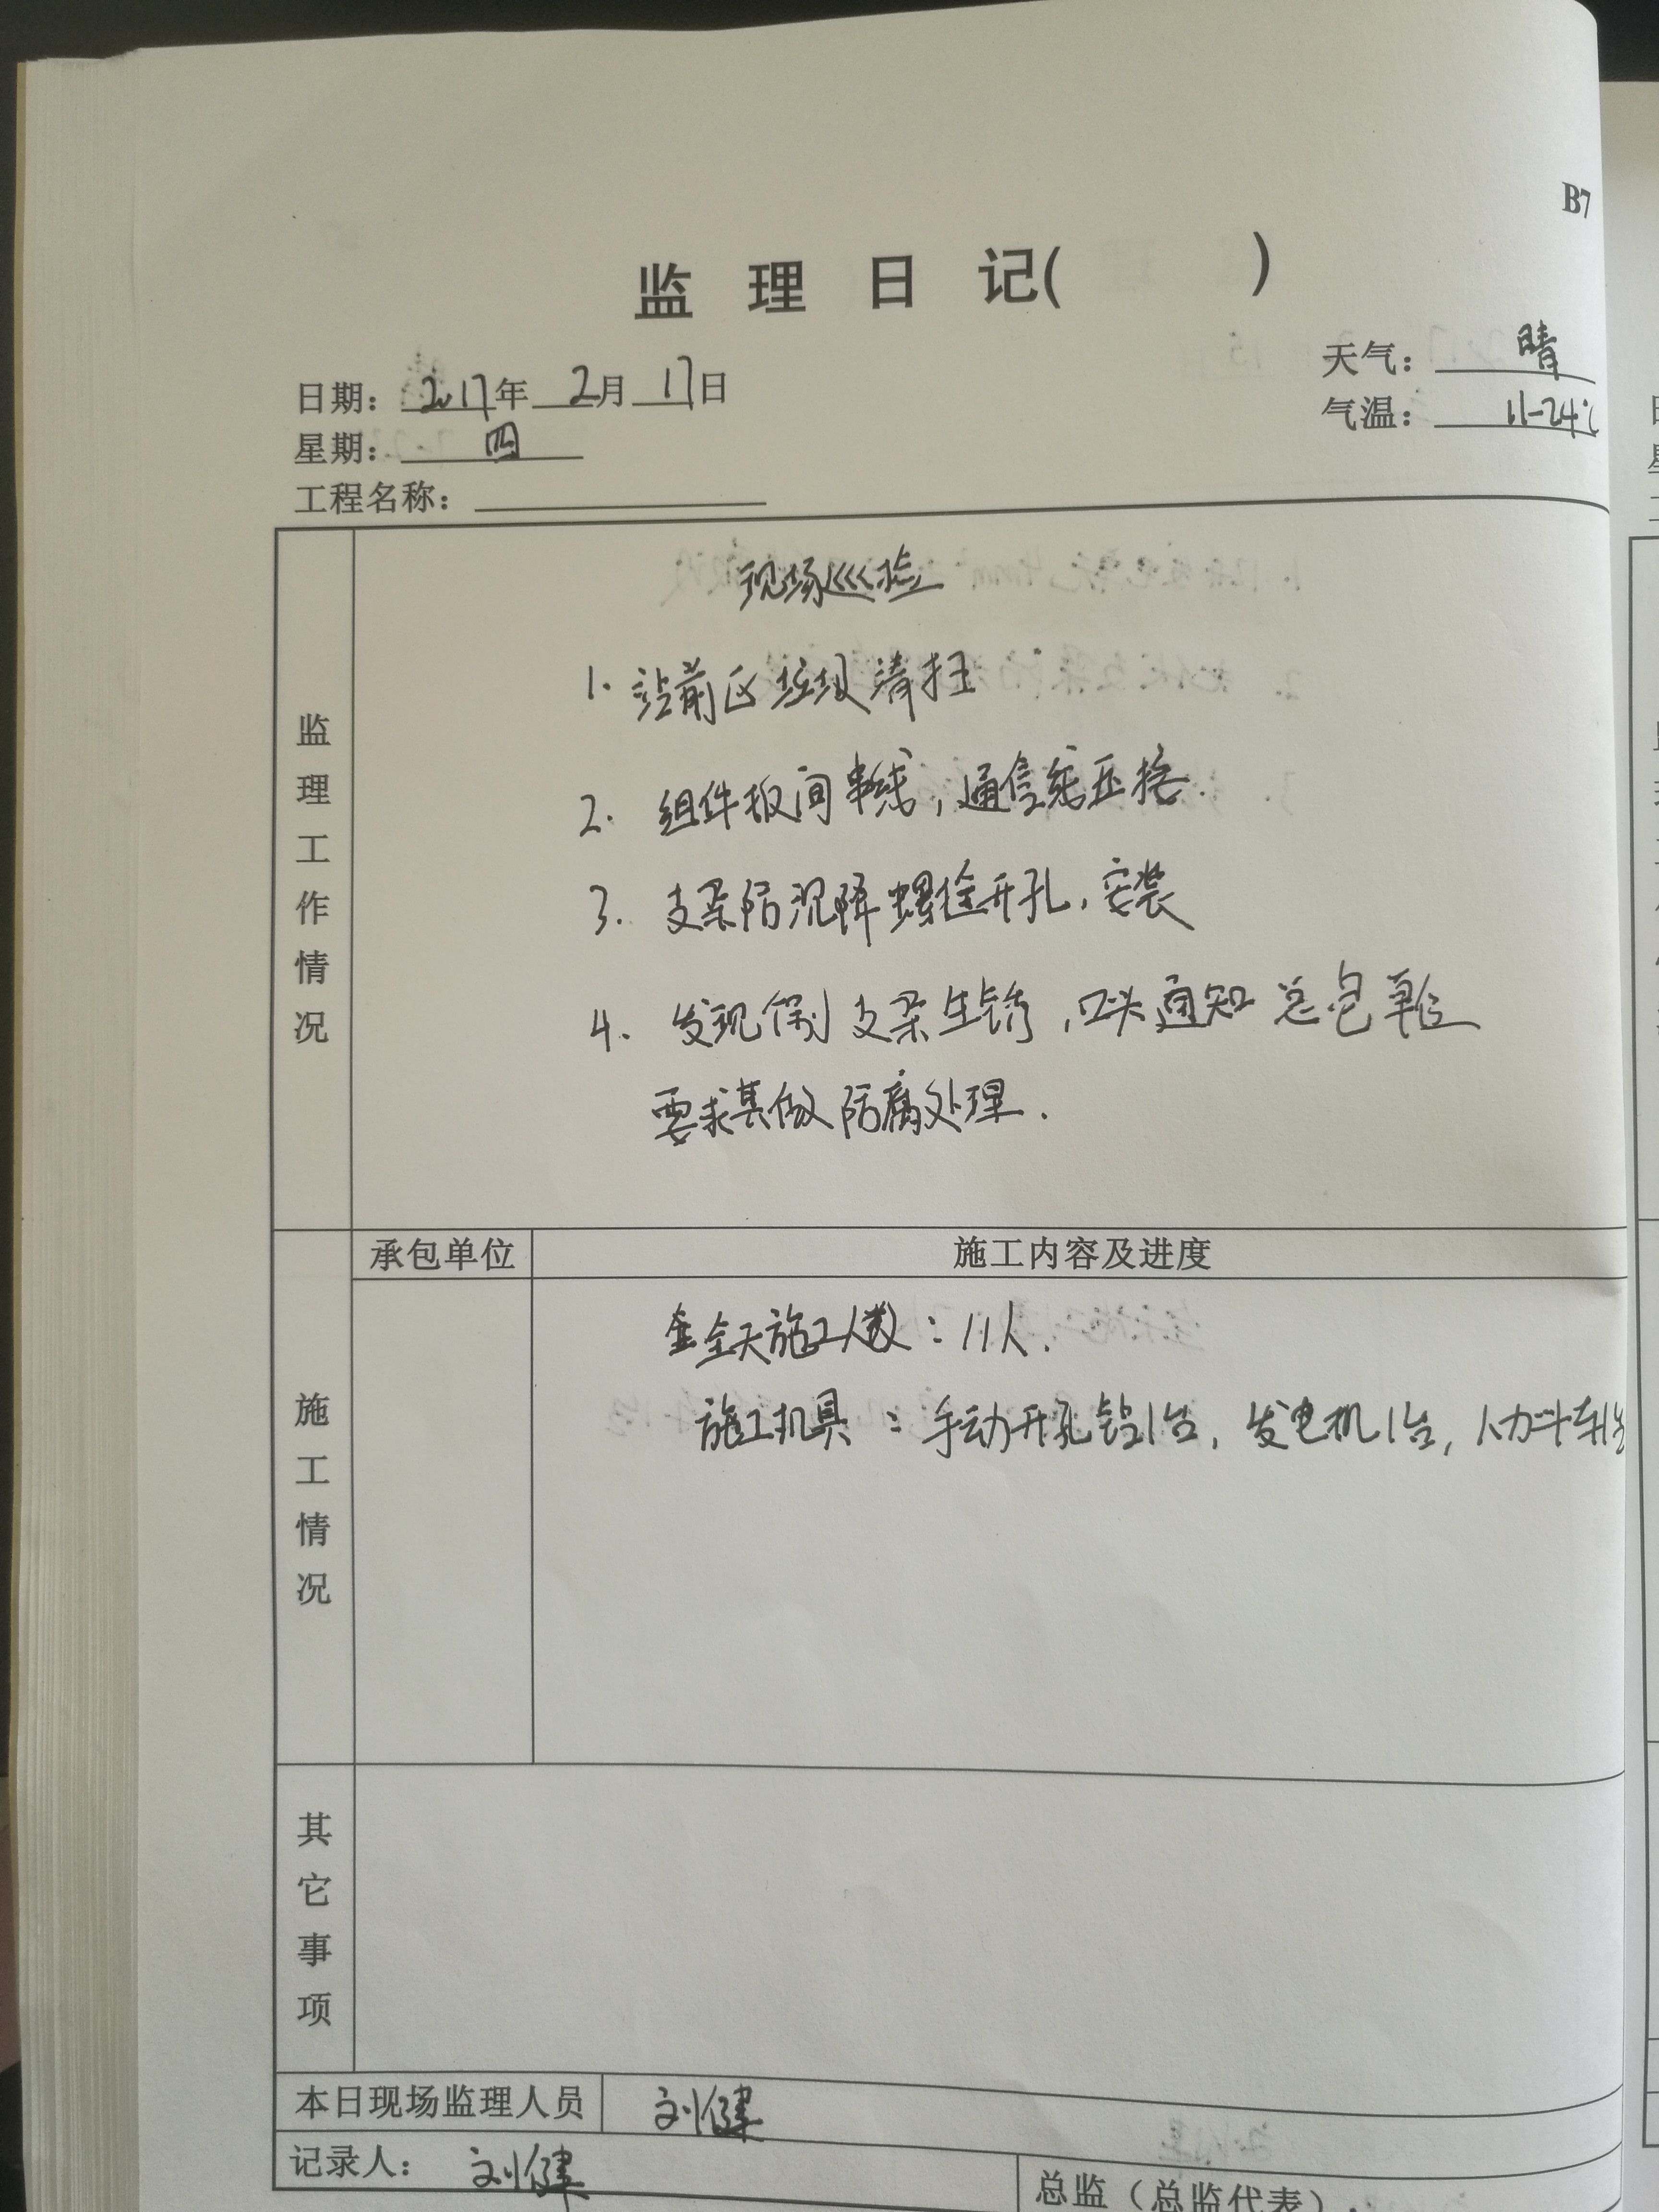 B7
监理日记( )
日期：2017年2月17日 天气：晴
星期：四 气温：11-24℃
工程名称：
监理工作情况
现场巡检
1. 站前区垃圾清扫
2. 组件板间串线，通信线压接.
3. 支架防沉降螺栓开孔，安装
4. 发现 支架生锈，口头通知总包单位
要求其做防腐处理.
承包单位 施工内容及进度
施工情况
全天施工人数：11人.
施工机具：手动开孔钻1台，发电机1台，人力斗车1台
其它事项
本日现场监理人员 刘健
记录人：刘健
总监（总监代表）